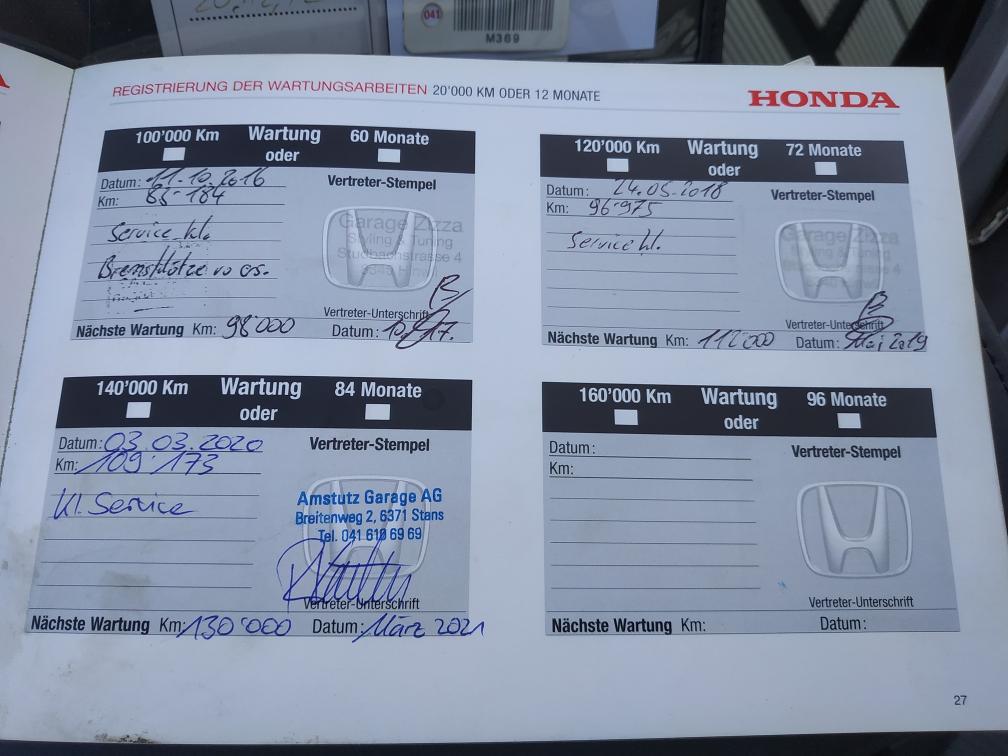 041
M369
REGISTRIERUNG DER WARTUNGSARBEITEN 20'000 KM ODER 12 MONATE
HONDA
100'000 Km Wartung 60 Monate
oder
Datum: 11.10.2016
Km: 83'184
Vertreter-Stempel
Service kl.
Bremsklötze vo ers.
Garage Zizza
Styling & Tuning
Studbachstrasse 4
Vertreter-Unterschrift
Nächste Wartung Km: 98'000 Datum: 10.17.
120'000 Km Wartung 72 Monate
oder
Datum: 24.05.2018
Km: 96'975
Vertreter-Stempel
Service kl.
Garage Zizza
Vertreter-Unterschrift
Nächste Wartung Km: 112'000 Datum: Mai 2019
140'000 Km Wartung 84 Monate
oder
Datum: 03.03.2020
Km: 109'173
Vertreter-Stempel
Kl. Service
Amstutz Garage AG
Breitenweg 2, 6371 Stans
Tel. 041 610 69 69
Vertreter-Unterschrift
Nächste Wartung Km: 130'000 Datum: März 2021
160'000 Km Wartung 96 Monate
oder
Datum:
Km:
Vertreter-Stempel
Vertreter-Unterschrift
Nächste Wartung Km: Datum:
27